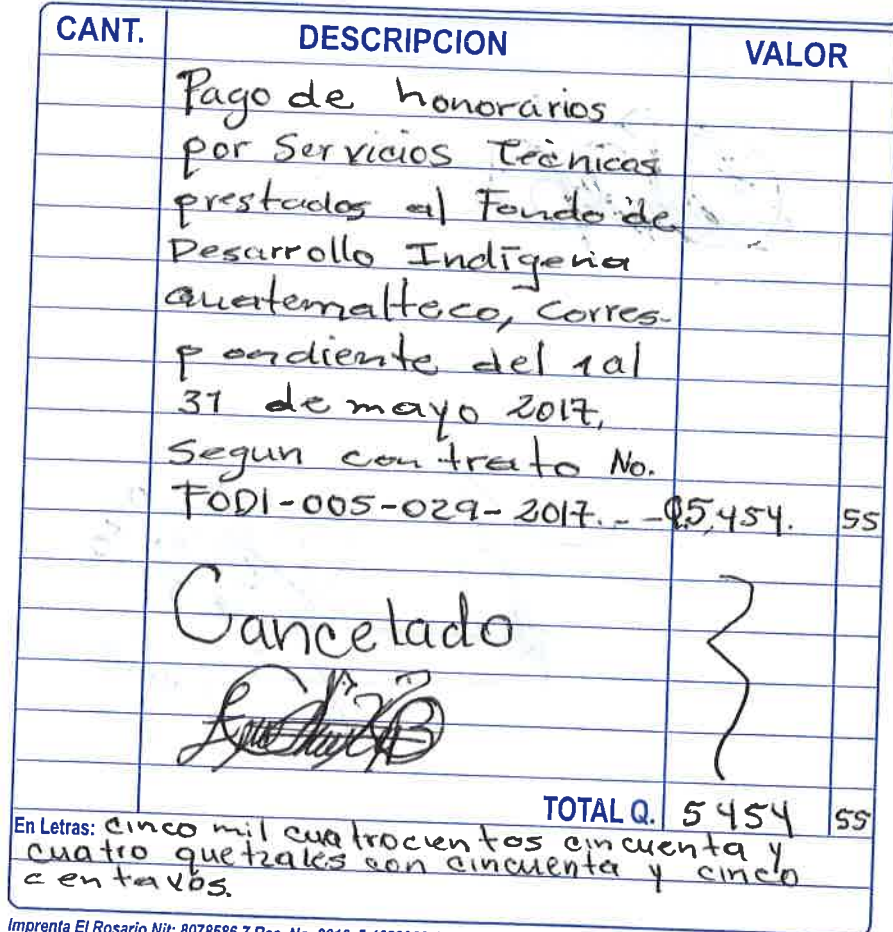 CANT. DESCRIPCION VALOR
Pago de honorarios
por Servicios Tecnicos
prestados al Fondo de
Desarrollo Indigena
Guatemalteco, Corres-
pondiente del 1 al
31 de mayo 2017,
Segun contrato No.
FODI-005-029-2017. - - Q5,454. 55
Cancelado
TOTAL Q. 5454 55
En Letras: cinco mil cuatrocientos cincuenta y
cuatro quetzales con cincuenta y cinco
centavos.
Imprenta El Rosario Nit: 8078586-7